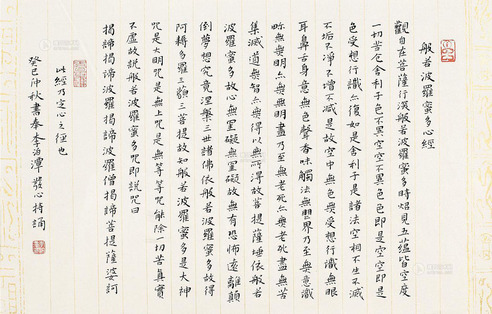 般若波羅蜜多心經
觀自在菩薩行深般若波羅蜜多時照見五蘊皆空度
一切苦厄舍利子色不異空空不異色色即是空空即是
色受想行識亦復如是舍利子是諸法空相不生不滅
不垢不淨不增不減是故空中無色無受想行識無眼
耳鼻舌身意無色聲香味觸法無眼界乃至無意識
界無無明亦無無明盡乃至無老死亦無老死盡無苦
集滅道無智亦無得以無所得故菩提薩埵依般若
波羅蜜多故心無罣礙無罣礙故無有恐怖遠離顛
倒夢想究竟涅槃三世諸佛依般若波羅蜜多故得
阿耨多羅三藐三菩提故知般若波羅蜜多是大神
咒是大明咒是無上咒是無等等咒能除一切苦真實
不虛故說般若波羅蜜多咒即說咒曰
揭諦揭諦波羅揭諦波羅僧揭諦菩提薩婆訶
此經乃定心之極也
癸巳仲秋書奉李泊潭發心持誦